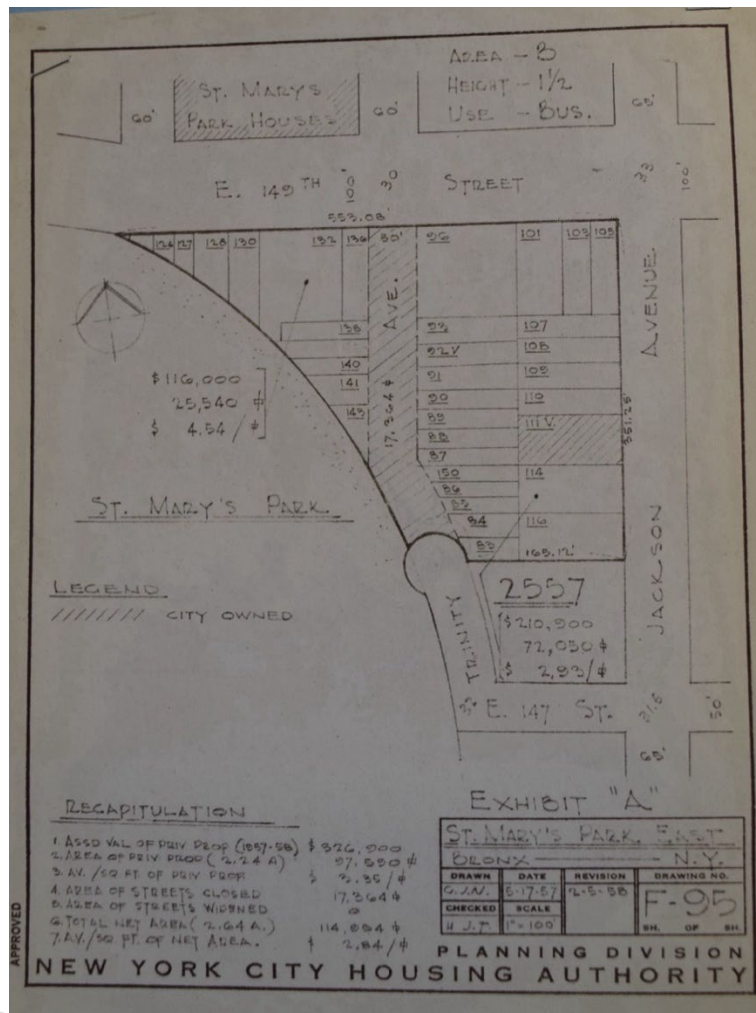 AREA - B
HEIGHT - 1 1/2
USE - BUS.
ST. MARY'S
PARK HOUSES
60'
60'
65'
E. 149TH STREET
100'
30
33
100'
553.08'
126 127 128 130 132 136 50' 96 101 103 105
138
140
141
143
AVE.
17,364 ¢
93
92 V
91
90
89
88
87
150
86
85
84
83
107
108
109
110
111 V.
114
116
165.12'
351.25'
JACKSON AVENUE
$116,000
25,540
$ 4.54 /
ST. MARY'S PARK
LEGEND
/////// CITY OWNED
2557
$210,900
72,050 ¢
$ 2.93/¢
TRINITY
E. 147 ST.
50'
65'
EXHIBIT "A"
RECAPITULATION
1. ASSD VAL OF PRIV PROP (1957-58) $ 326,900
2. AREA OF PRIV PROP (2.24 A) 97,590 ¢
3. AV. /SQ FT. OF PRIV PROP $ 3.35/¢
4. AREA OF STREETS CLOSED 17,364 ¢
5. AREA OF STREETS WIDENED 0
6. TOTAL NET AREA (2.64 A.) 114,954 ¢
7. AV./SQ FT. OF NET AREA. $ 2.84/¢
ST. MARY'S PARK EAST
BRONX N.Y.
DRAWN DATE REVISION DRAWING NO.
G.J.N. 6-17-57 2-5-58 F-95
CHECKED SCALE
H.J.T. 1"=100' SH. OF SH.
APPROVED
PLANNING DIVISION
NEW YORK CITY HOUSING AUTHORITY